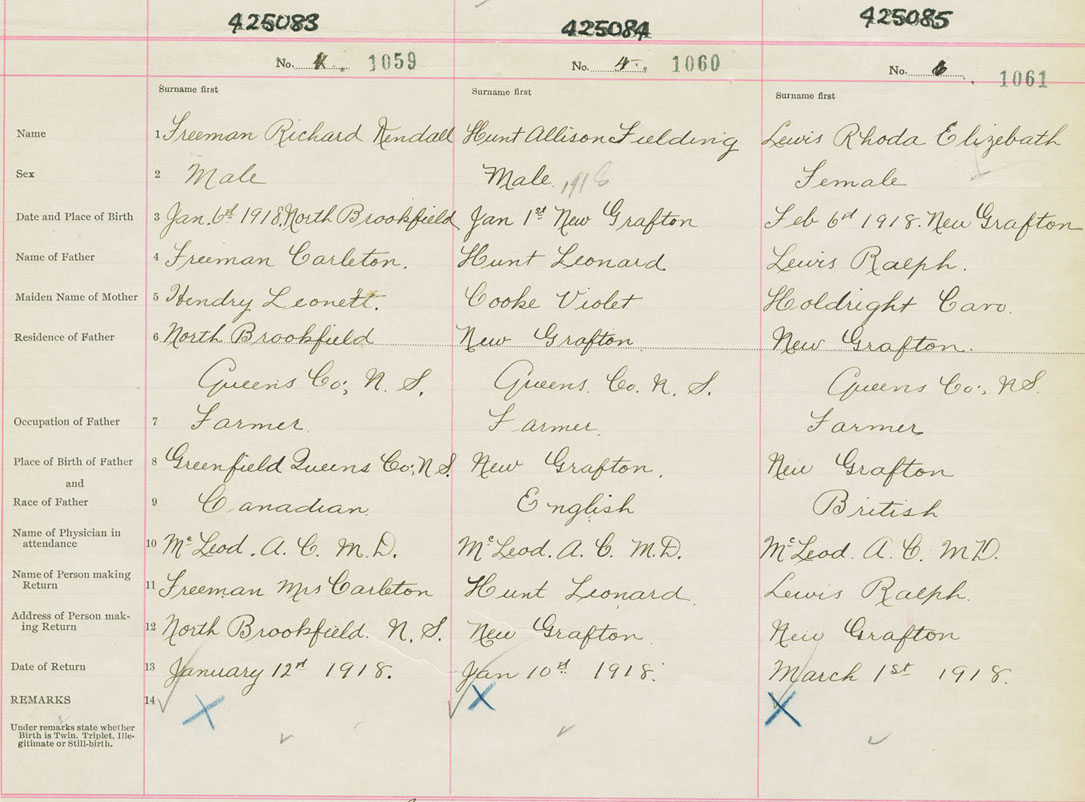 425083 425084 425085
No. 1059 No. 4. 1060 No. 6 1061
Surname first Surname first Surname first
Name 1 Freeman Richard Kendall Hunt Allison Fielding Lewis Rhoda Elizebath
Sex 2 Male Male 1918 Female
Date and Place of Birth 3 Jan. 6th 1918, North Brookfield Jan 1st New Grafton Feb 6th 1918. New Grafton
Name of Father 4 Freeman Carleton. Hunt Leonard Lewis Ralph.
Maiden Name of Mother 5 Hendry Leonett. Cooke Violet Holdright Caro.
Residence of Father 6 North Brookfield New Grafton New Grafton.
Queens Co; N. S. Queens. Co. N. S. Queens Co; N S.
Occupation of Father 7 Farmer Farmer. Farmer
Place of Birth of Father 8 Greenfield Queens Co; N S. New Grafton. New Grafton
and
Race of Father 9 Canadian English British
Name of Physician in
attendance 10 McLeod. A. C. M.D. McLeod. A. C. M.D. McLeod. A. C. M.D.
Name of Person making
Return 11 Freeman Mrs Carleton Hunt Leonard Lewis Ralph.
Address of Person mak-
ing Return 12 North Brookfield. N. S. New Grafton New Grafton
Date of Return 13 January 12th 1918. Jan 10th 1918. March 1st 1918.
REMARKS 14
Under remarks state whether
Birth is Twin, Triplet, Ille-
gitimate or Still-birth.